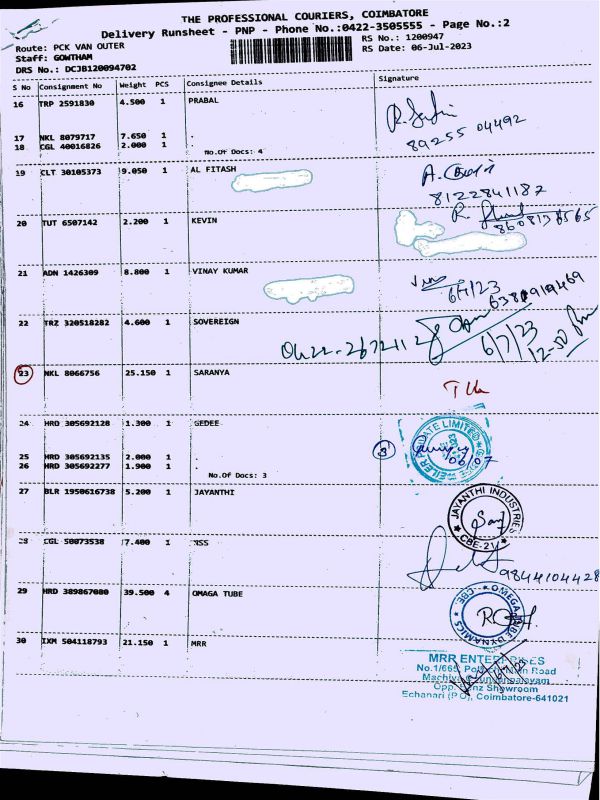 THE PROFESSIONAL COURIERS, COIMBATORE
Delivery Runsheet - PNP - Phone No.:0422-3505555 - Page No.:2
Route: PCK VAN OUTER RS No.: 1200947
Staff: GOWTHAM RS Date: 06-Jul-2023
DRS No.: DCJB120094702
S No Consignment No Weight PCS Consignee Details Signature
16 TRP 2591830 4.500 1 PRABAL
89255 04492
17 NKL 8079717 7.650 1 .
18 CGL 40016826 2.000 1 .
No.Of Docs: 4
19 CLT 30105373 9.050 1 AL FITASH
8122841187
20 TUT 6507142 2.200 1 KEVIN
21 ADN 1426309 8.800 1 VINAY KUMAR
6/7/23
22 TRZ 320518282 4.600 1 SOVEREIGN
6/7/23
12-50
23 NKL 8066756 25.150 1 SARANYA
24 HRD 305692128 1.300 1 GEDEE
25 HRD 305692135 2.000 1 .
26 HRD 305692277 1.900 1 .
No.Of Docs: 3
06/07
27 BLR 1950616738 5.200 1 JAYANTHI
JAYANTHI INDUSTRIES
CBE-21
28 CGL 50073538 7.400 1 NSS
9844104428
29 HRD 389867080 39.500 4 OMAGA TUBE
30 IXM 504118793 21.150 1 MRR
MRR ENTERPRISES
Opp. Showroom
Echanari (P.O), Coimbatore-641021